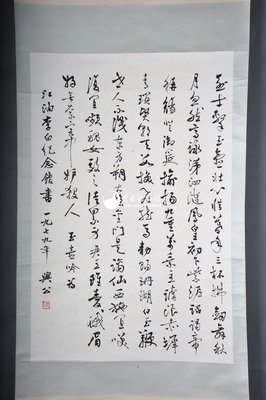 烈士擊玉壺壯心惜暮年三杯拂劍舞秋
月忽然高詠涕泗漣鳳皇初下紫泥詔謁帝
稱觴登御筵揄揚九重萬乘主謔浪赤墀
青瑣賢朝天數換飛龍馬勅賜珊瑚白玉鞭
世人不識東方朔大隱金門是謫仙西施宜笑
復宜嚬醜女效之徒累身君王雖愛蛾眉
好無奈宮中妒殺人 玉壺吟为
江油李白纪念馆書 一九七九年 興公